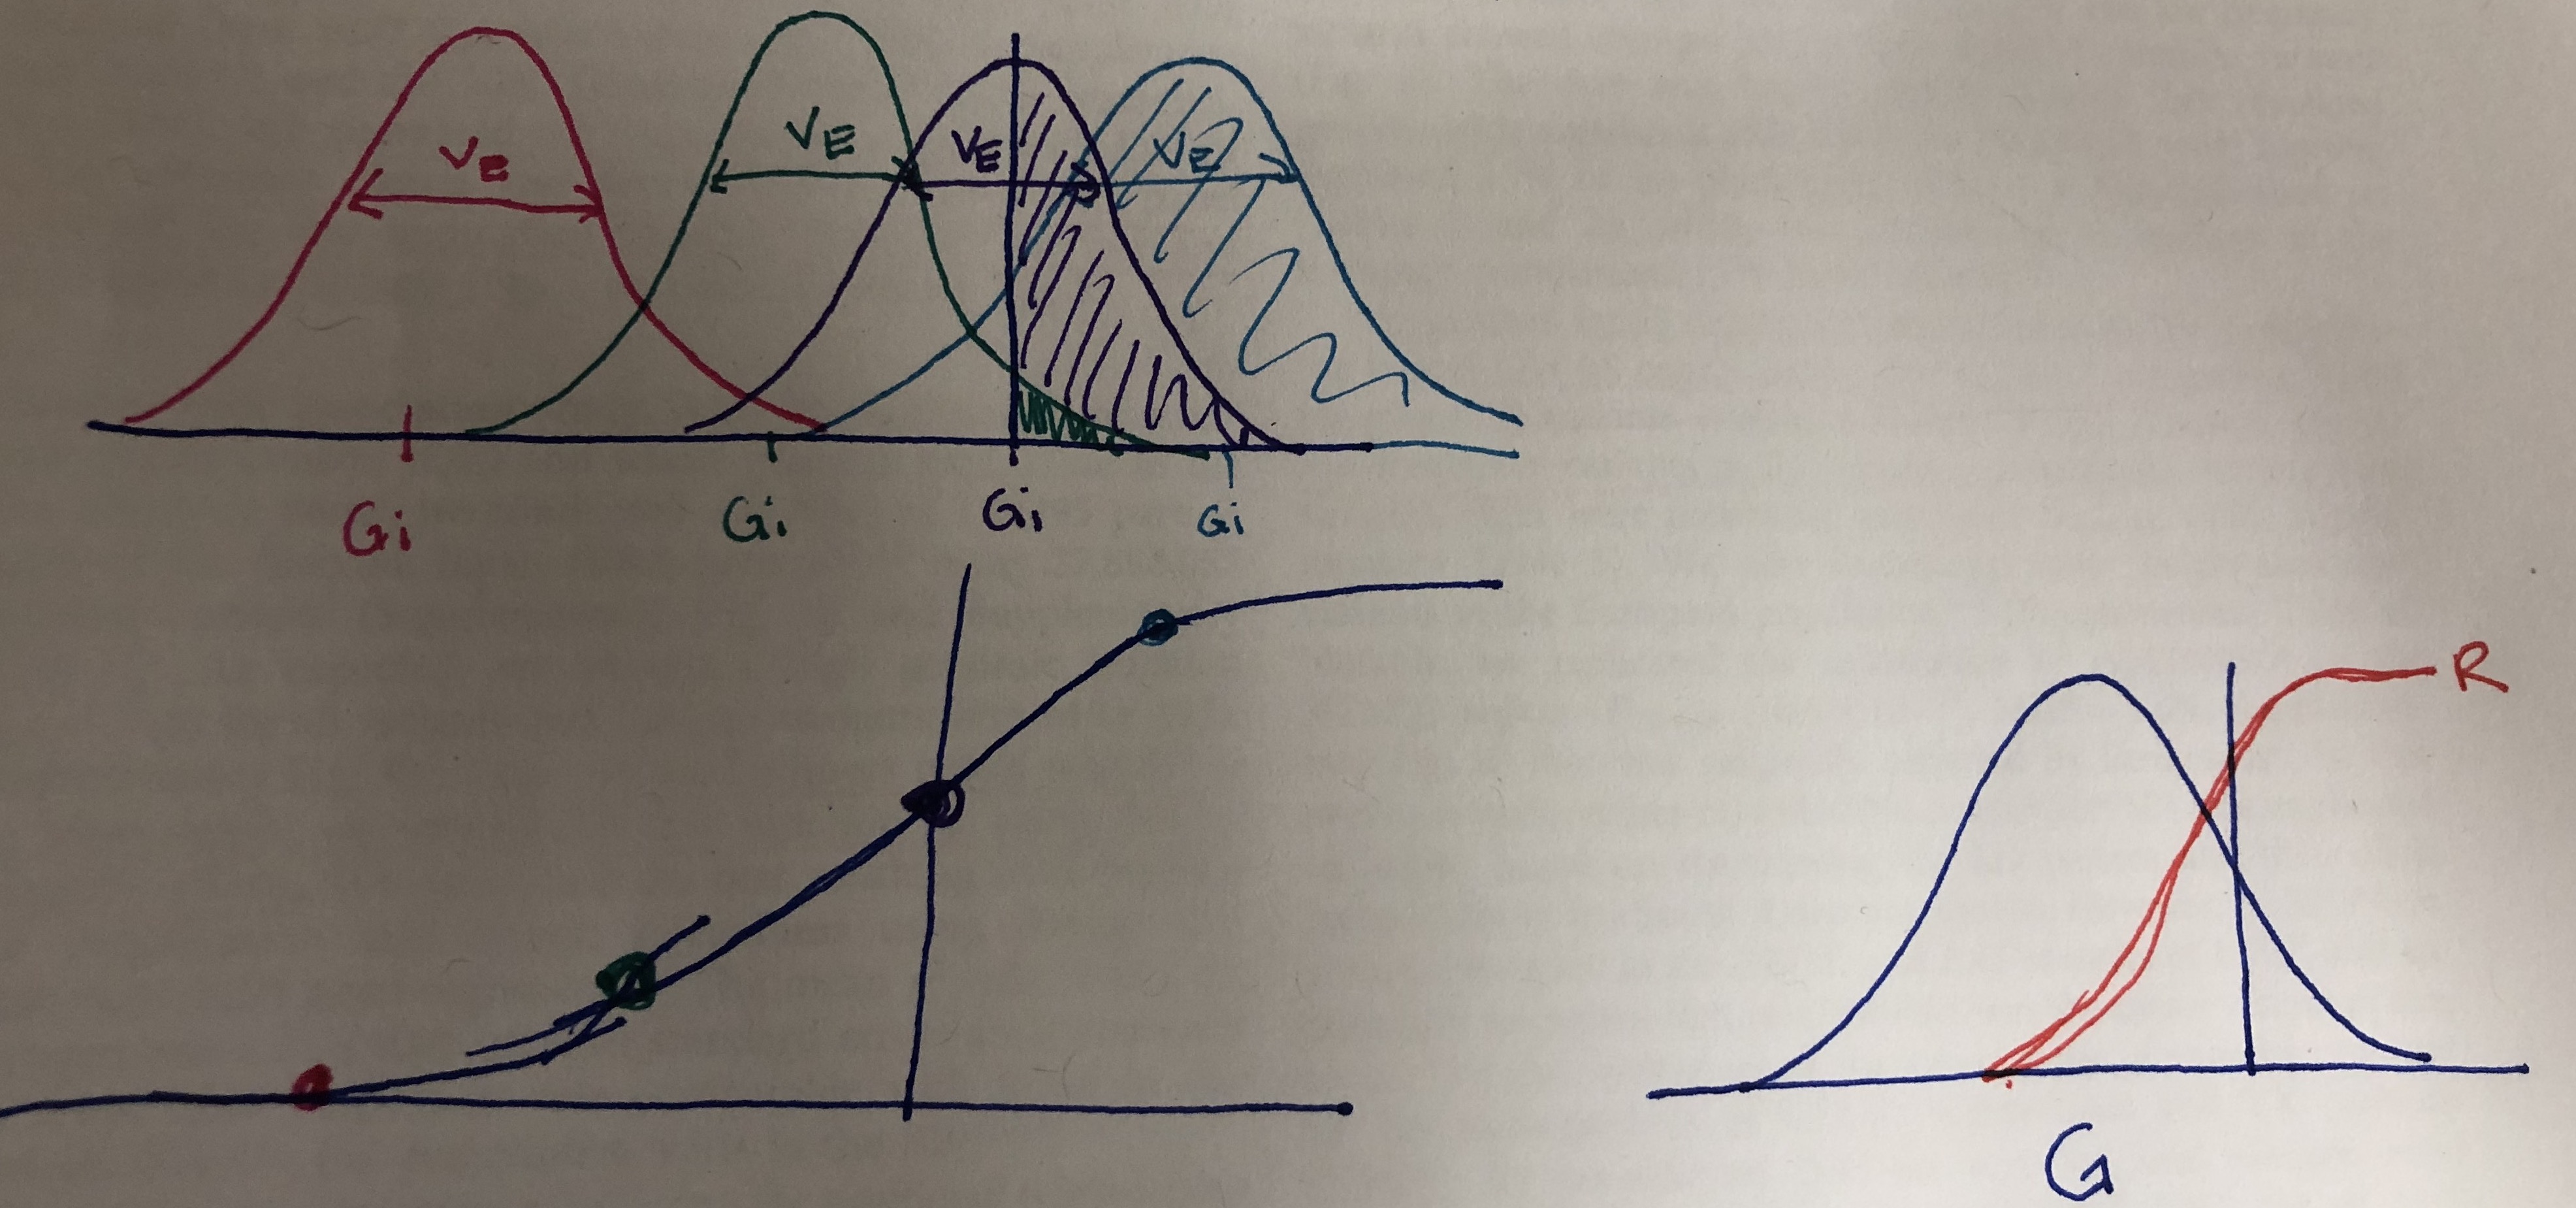 VE VE VE VE
Gi Gi Gi Gi
R
G